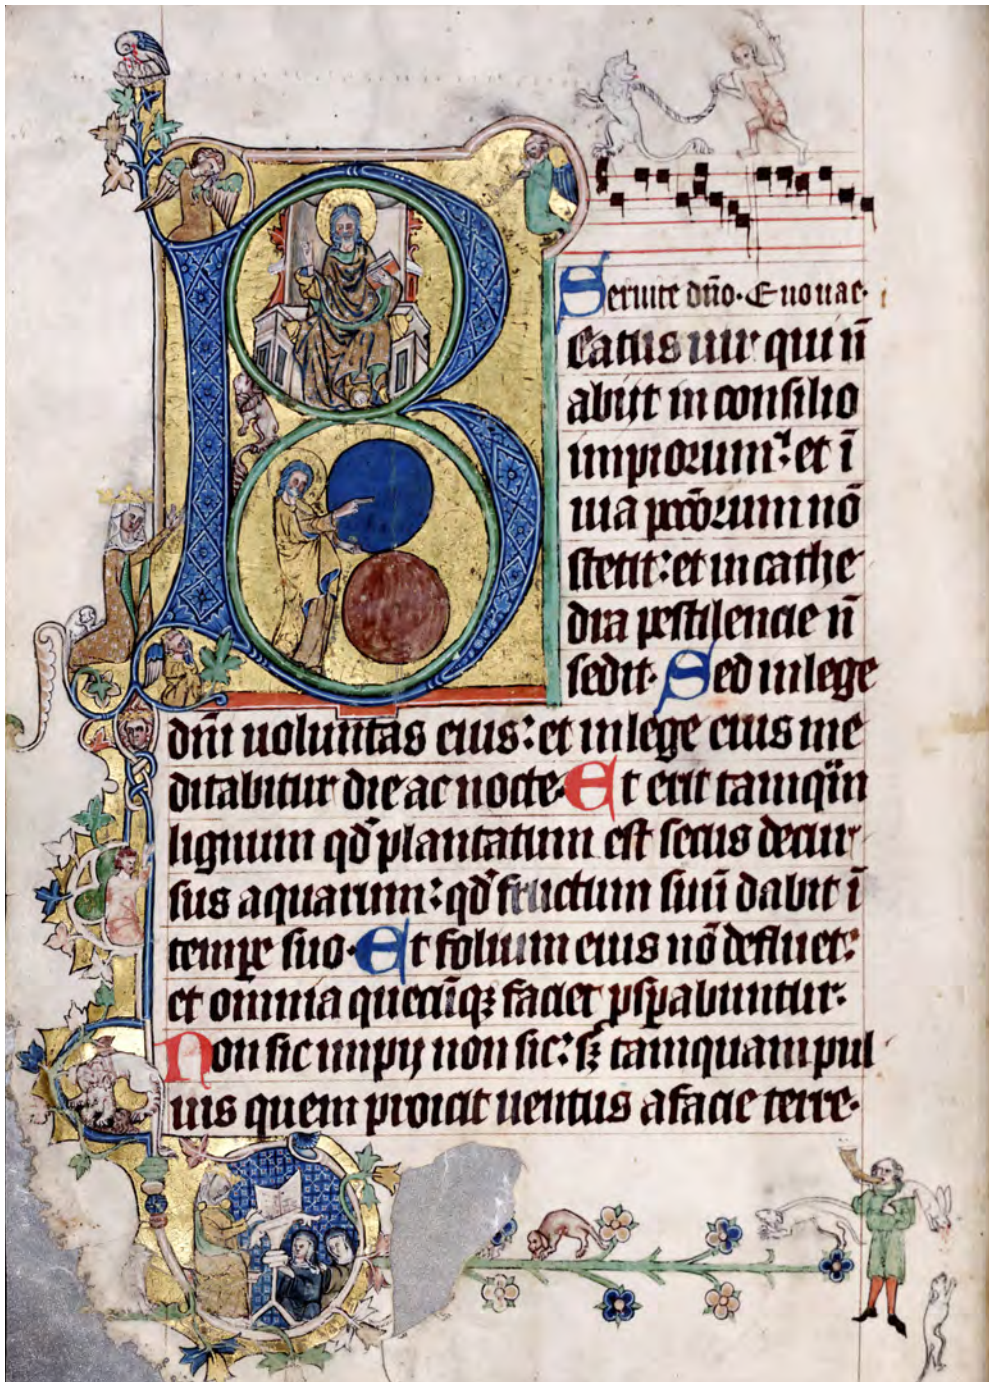 Seruite dño. Euouae.
Beatus uir qui ñ
abijt in consilio
impiorum: et ī
uia pccōrum nō
stetit: et in cathe
dra pestilencie ñ
sedit. Sed in lege
dñi uoluntas eius: et in lege eius me
ditabitur die ac nocte. Et erit tamq̄m
lignum qd̓ plantatum est secus decur
sus aquarum: qd̓ fructum suū dabit ī
temꝑe suo. Et folium eius nō defluet:
et omnia quecūqꝫ faciet ꝓsꝑabuntur.
Non sic impij non sic: sꝫ tamquam pul
uis quem proicit uentus a facie terre.